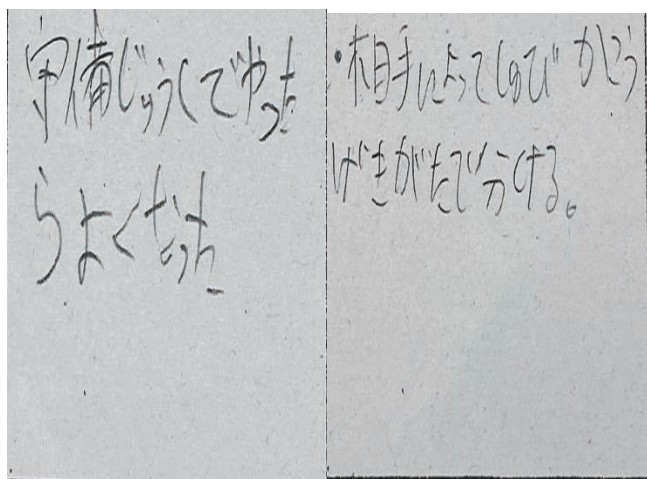 守備じゅうしでやった
らよくなった
・相手によってしゅびかこう
げきがたで分ける。